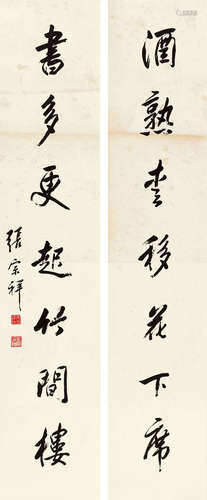 酒熟移花下席
書多更起竹間樓
張宗祥